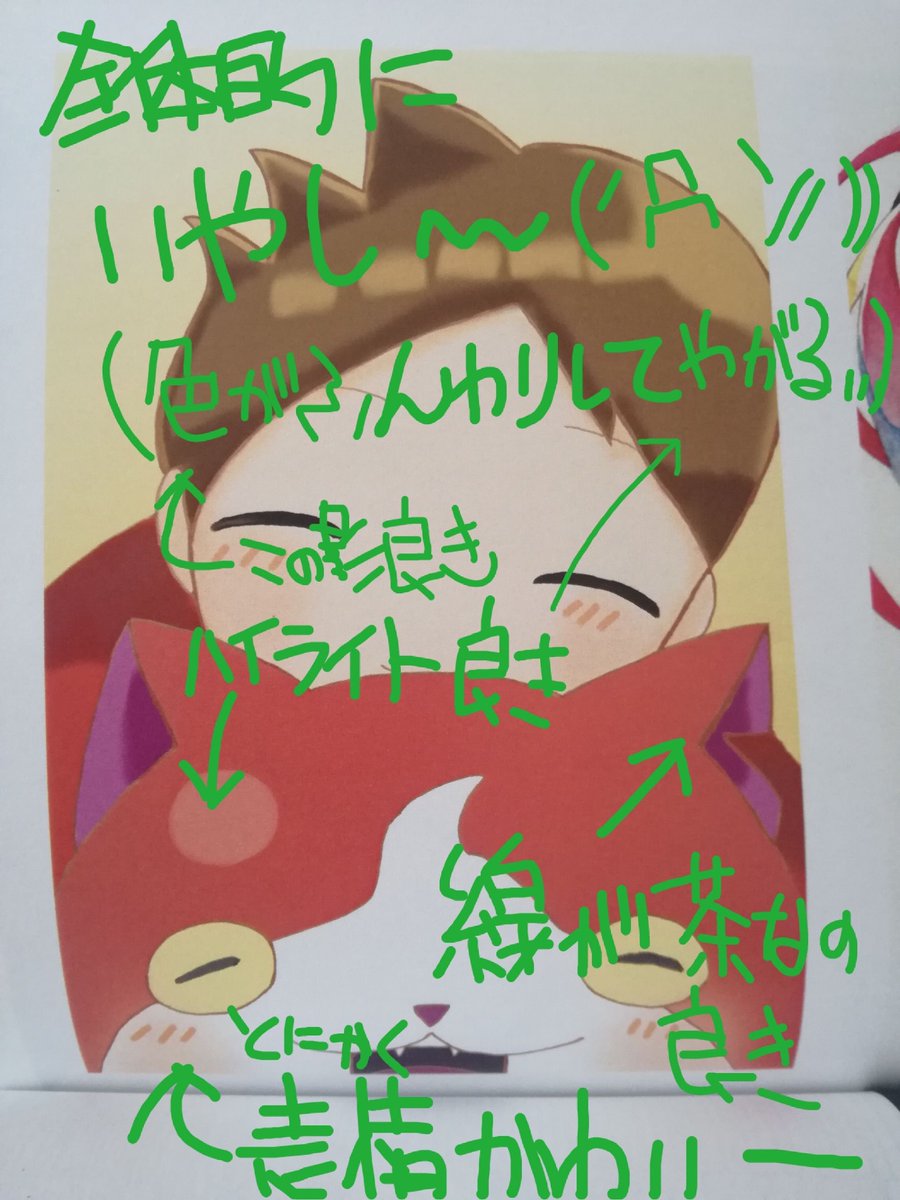 全体的に
いやし〜(´Д｀〃))
(色がふんわりしてやがる〃)
この影良き
ハイライト良き
線が茶なの
良き
とにかく
表情がわいー